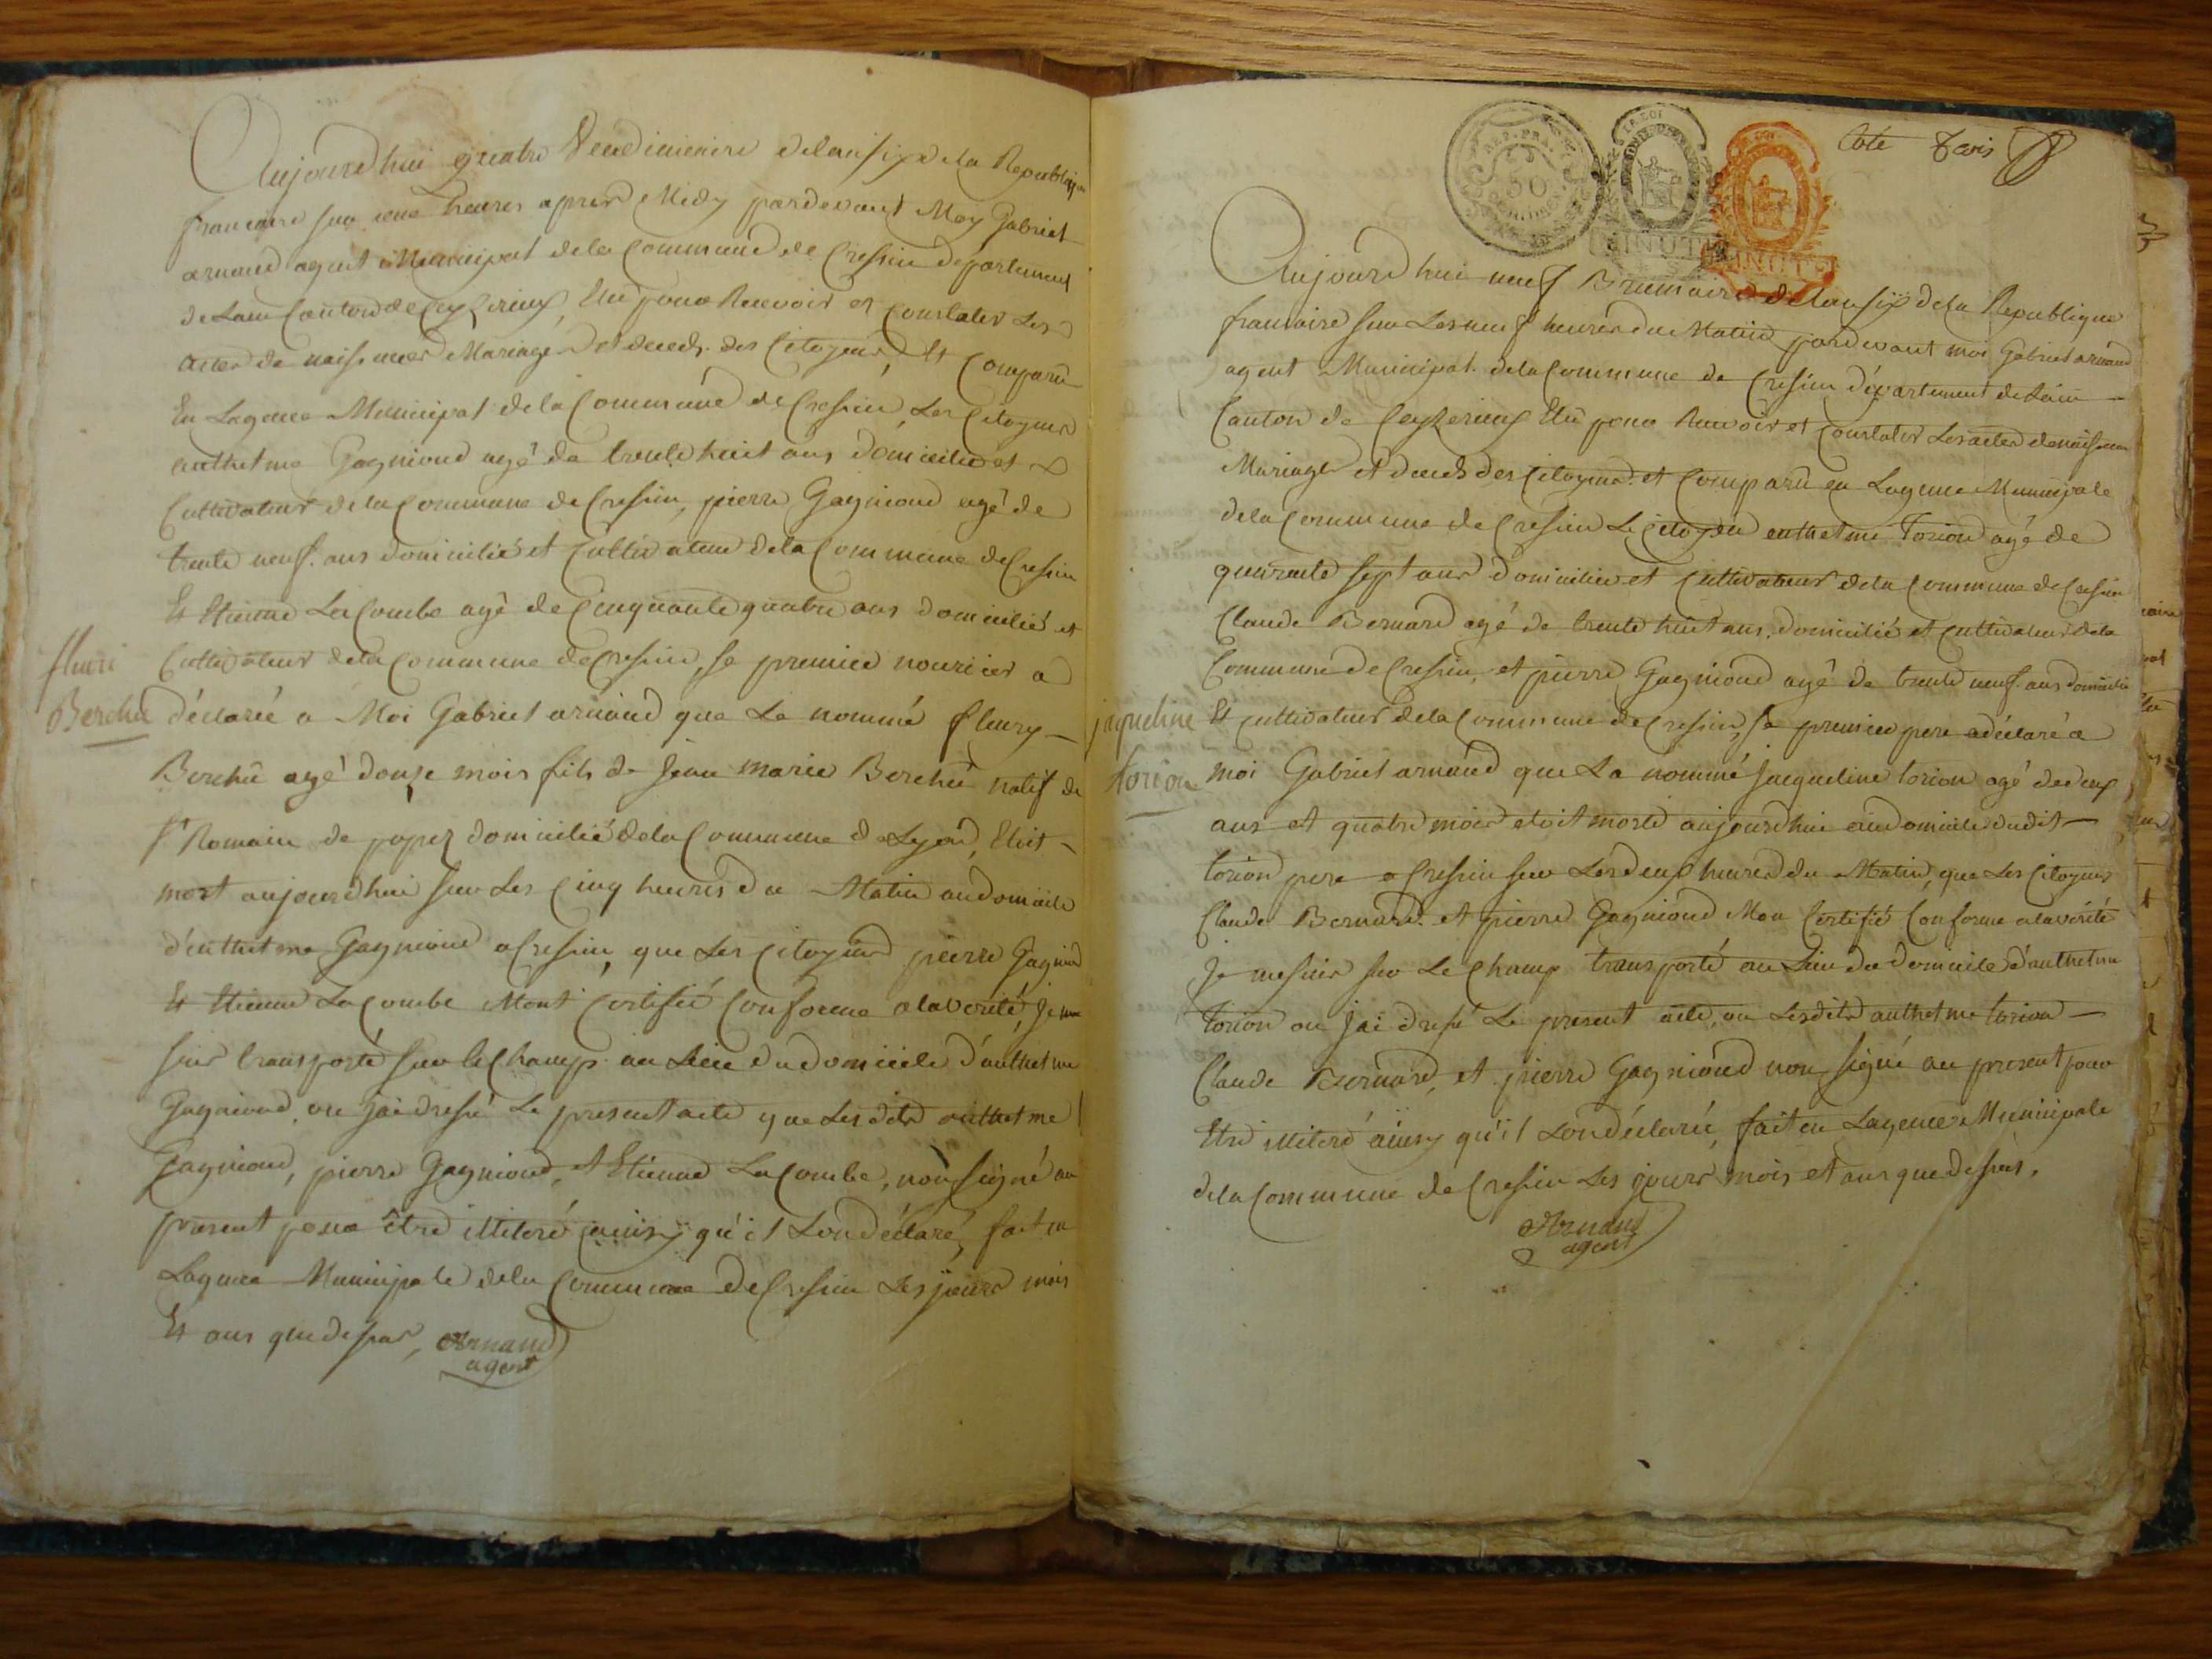 Aujourdhui quatre Vendimiaire delansix dela Republique
francaise sur une heures apres Midy pardevant Moy Gabriel
arnaud agent Municipal dela Commune de Cressin departement
de Lain Canton de Ceyzerieux, Elu pour Recevoir et Constater Les
actes de naissances Mariages et deceds des Citoyens, Et Comparu
En Lagence Municipal dela Commune de Cressin Les Citoyens
anthelme Gagnioud agé de trente huit ans domicilié et
Cultivateur dela Commune de Cressin, pierre Gagnioud agé de
trente neuf ans domicilié et Cultivateur dela Commune de Cressin
Et Etienne La Combe agé de Cinquante quatre ans domicilié et
Cultivateur dela Commune de Cressin, le premier nouricier a
fluri
Berchu
déclarée a Moi Gabriel arnaud que Le nommé fleury
Berchu agé douze mois fils de Jean marie Berchu natif de
st Romain de popez domicilié dela Commune de Lyon, Etoit
mort aujourdhui sur Les Cinq heures du Matin audomicile
d'anthelme Gagnioud a Cressin, que Les Citoyens pierre Gagnioud
Et Etienne La Combe Mont Certifié Conforme alaverité, Je me
suis transporté sur le Champ au Lieu du domicile d'anthelme
Gagnioud, ou Jai dressé Le present acte que Les dits anthelme
Gagnioud, pierre Gagnioud, Et Etienne La Combe, non signé au
present pour être illiteré ainsy qu'il Londéclaré, fait en
Lagence Municipale dela Commune De Cressin Les jours mois
Et ans que dessus, Arnaud
agent
Coté trois
REP. FRA.
50
LA LOI
MINUTE
MINUTE
Aujourdhui neuf Brumaire delansix dela Republique
francaise sur Les neuf heures du Matin, pardevant moi Gabriel arnaud
agent Municipal dela Commune de Cressin département de Lain
Canton de Ceyzerieux Elu pour Recevoir et Constater Les actes denaissances
Mariage et deceds des Citoyens et Comparu en Lagence Municipale
dela Commune de Cressin Le Citoyen anthelme Torion agé de
quarante sept ans domicilié et Cultivateur dela Commune de Cressin
Claude Bernard agé de trente huit ans, domicilié et Cultivateur dela
Commune de Cressin, et pierre Gagnioud agé de trente neuf ans domicilié
jaqueline
torion
Et Cultivateur dela Commune de Cressin, Le premier pere adéclaré a
moi Gabriel arnaud que La nommé Jacqueline torion agé de deux
ans et quatre mois etoit morte aujourdhui audomicile dudit
torion pere a Cressin sur Les deux heures du Matin, que Les Citoyens
Claude Bernard et pierre Gagnioud Mon Certifié Conforme alaverité
Je mesuis sur Le Champ transporté au Lieu du domicile d'anthelme
torion ou Jai dressé Le present acte, ou Lesdits anthelme torion
Claude Bernard, et pierre Gagnioud non signé au present pour
Etre illiteré ainsy qu'il Londéclaré, fait en Lagence Municipale
dela Commune de Cressin Les jours mois et ans que dessus,
Arnaud
agent